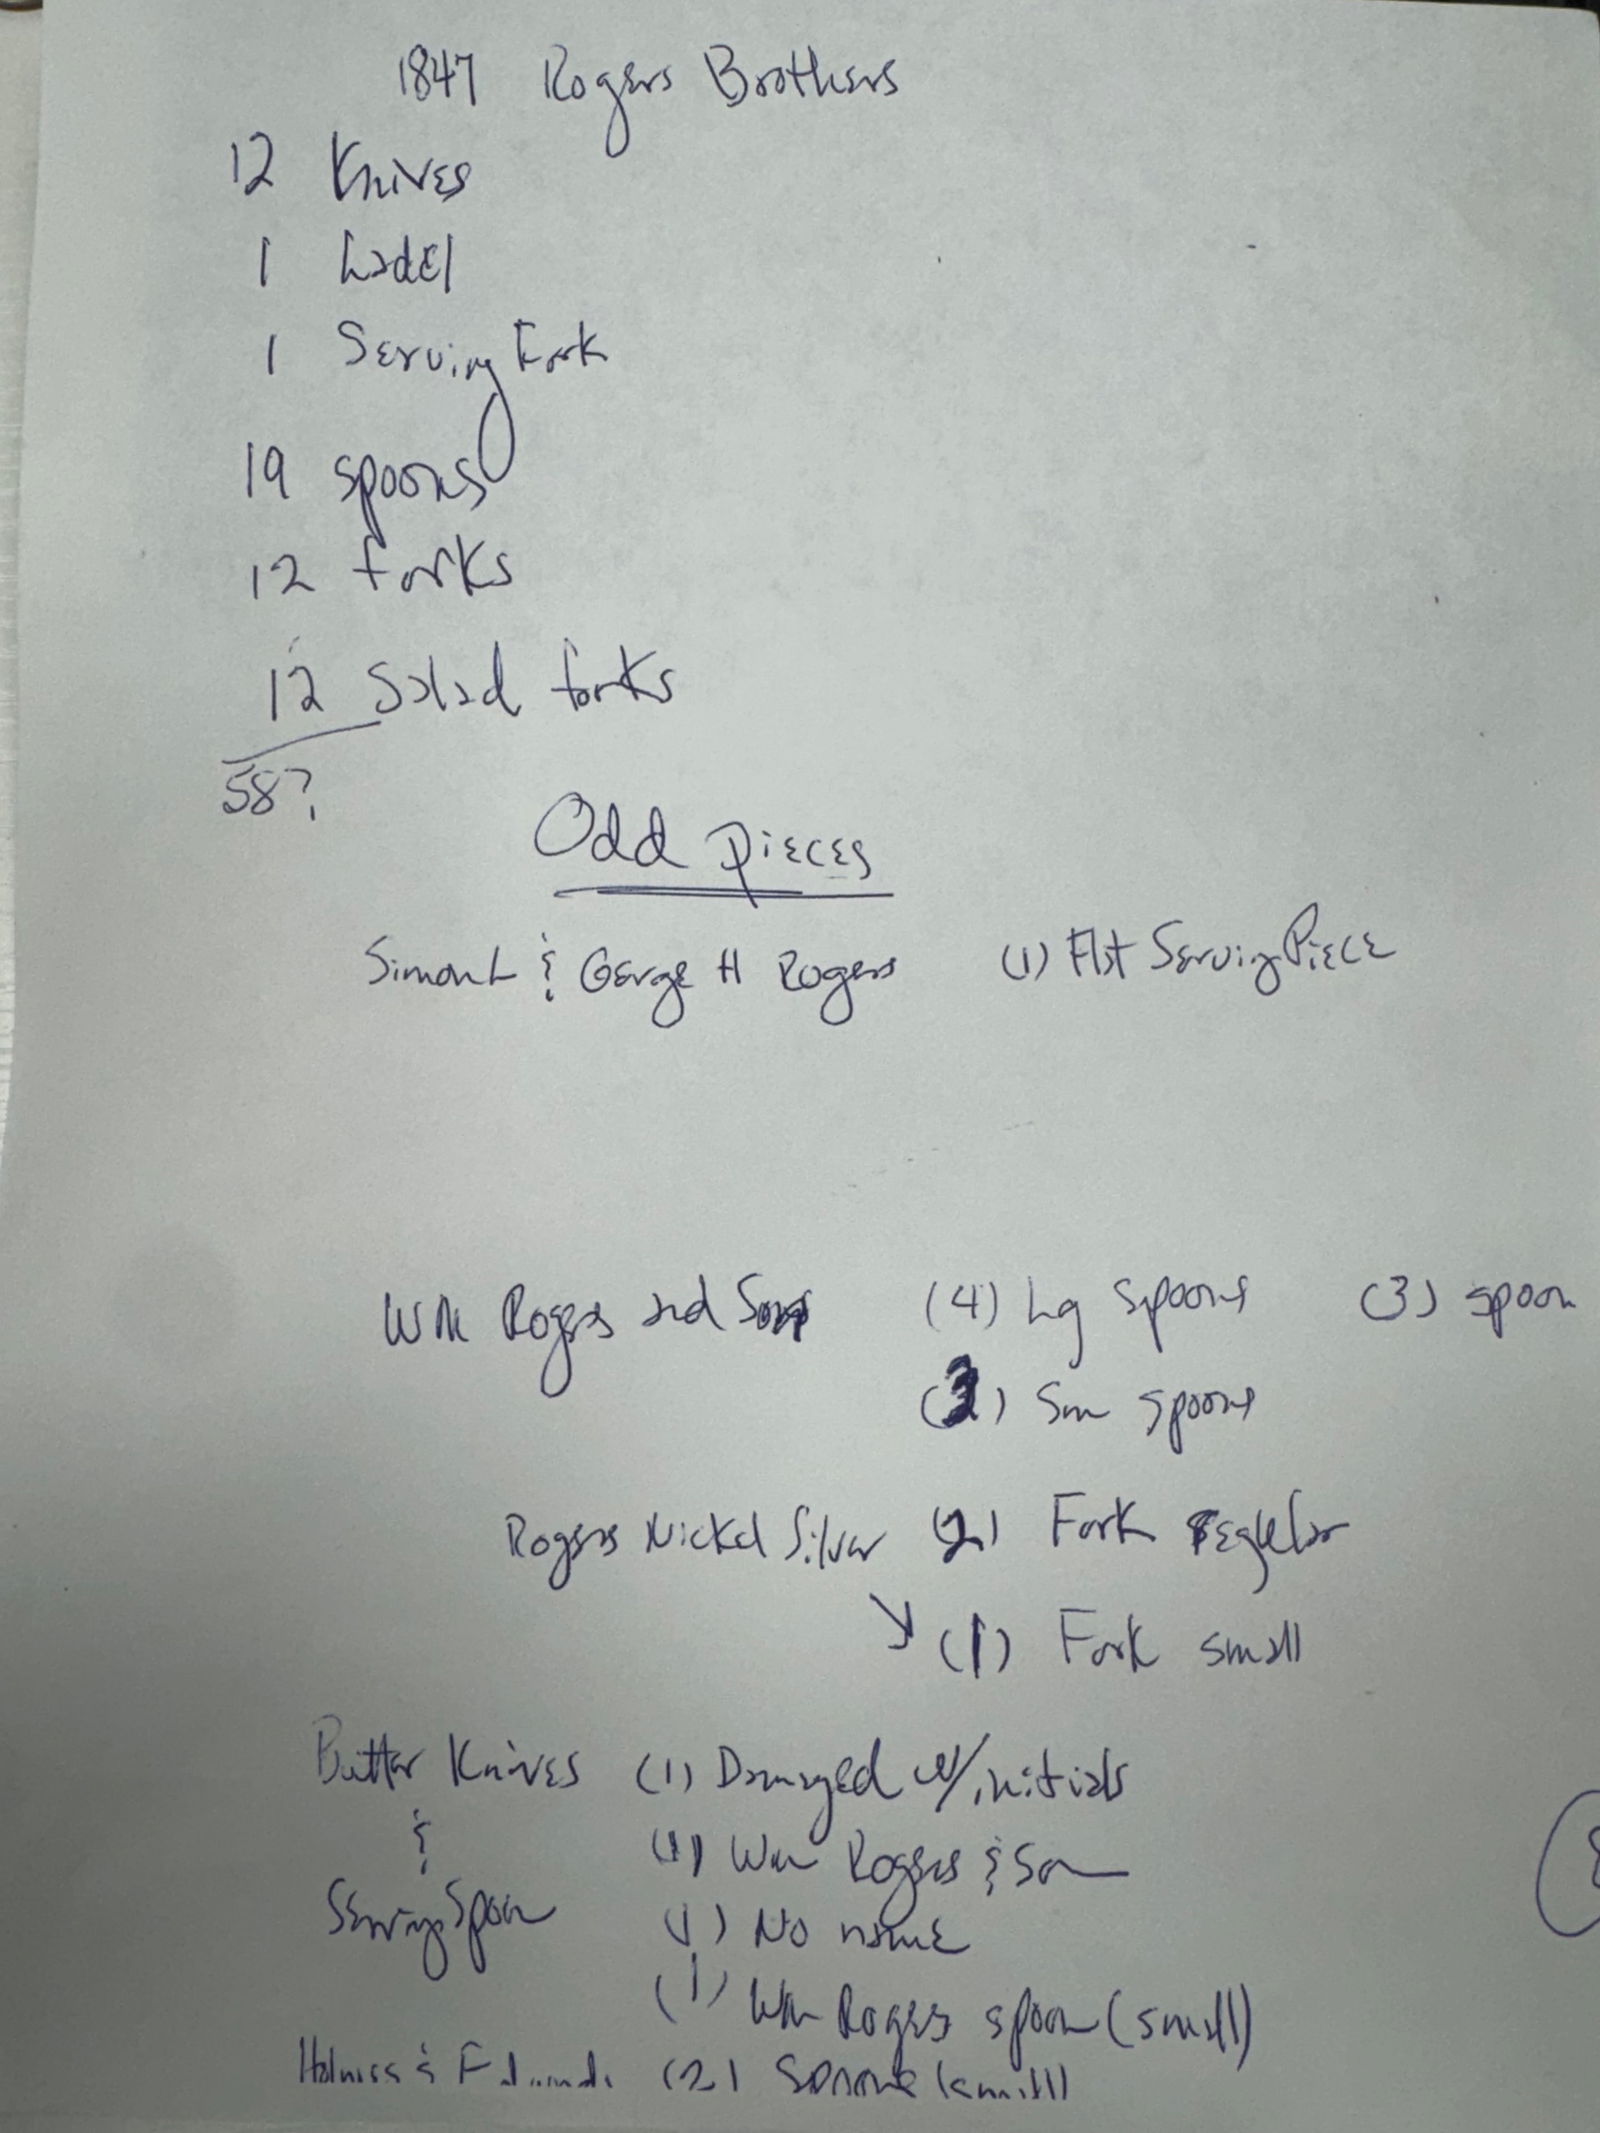 1847 Rogers Brothers
12 Knives
1 Ladel
1 Serving Fork
19 spoons
12 forks
12 Salad forks
58?
Odd pieces
Simon L & George H Rogers (1) Flat Serving Piece
WM Rogers and Sons (4) Lg Spoons (3) spoon
(3) Sm spoons
Rogers Nickel Silver (2) Fork regular
(1) Fork small
Butter Knives (1) Damaged w/initials
& (1) Wm Rogers & Son
Serving Spoon (1) No name
(1) Wm Rogers spoon (small)
Holmes & Edwards (2) Spoons (small)